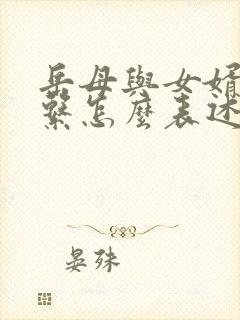 岳母與女婿
繫怎麼表述
晏殊